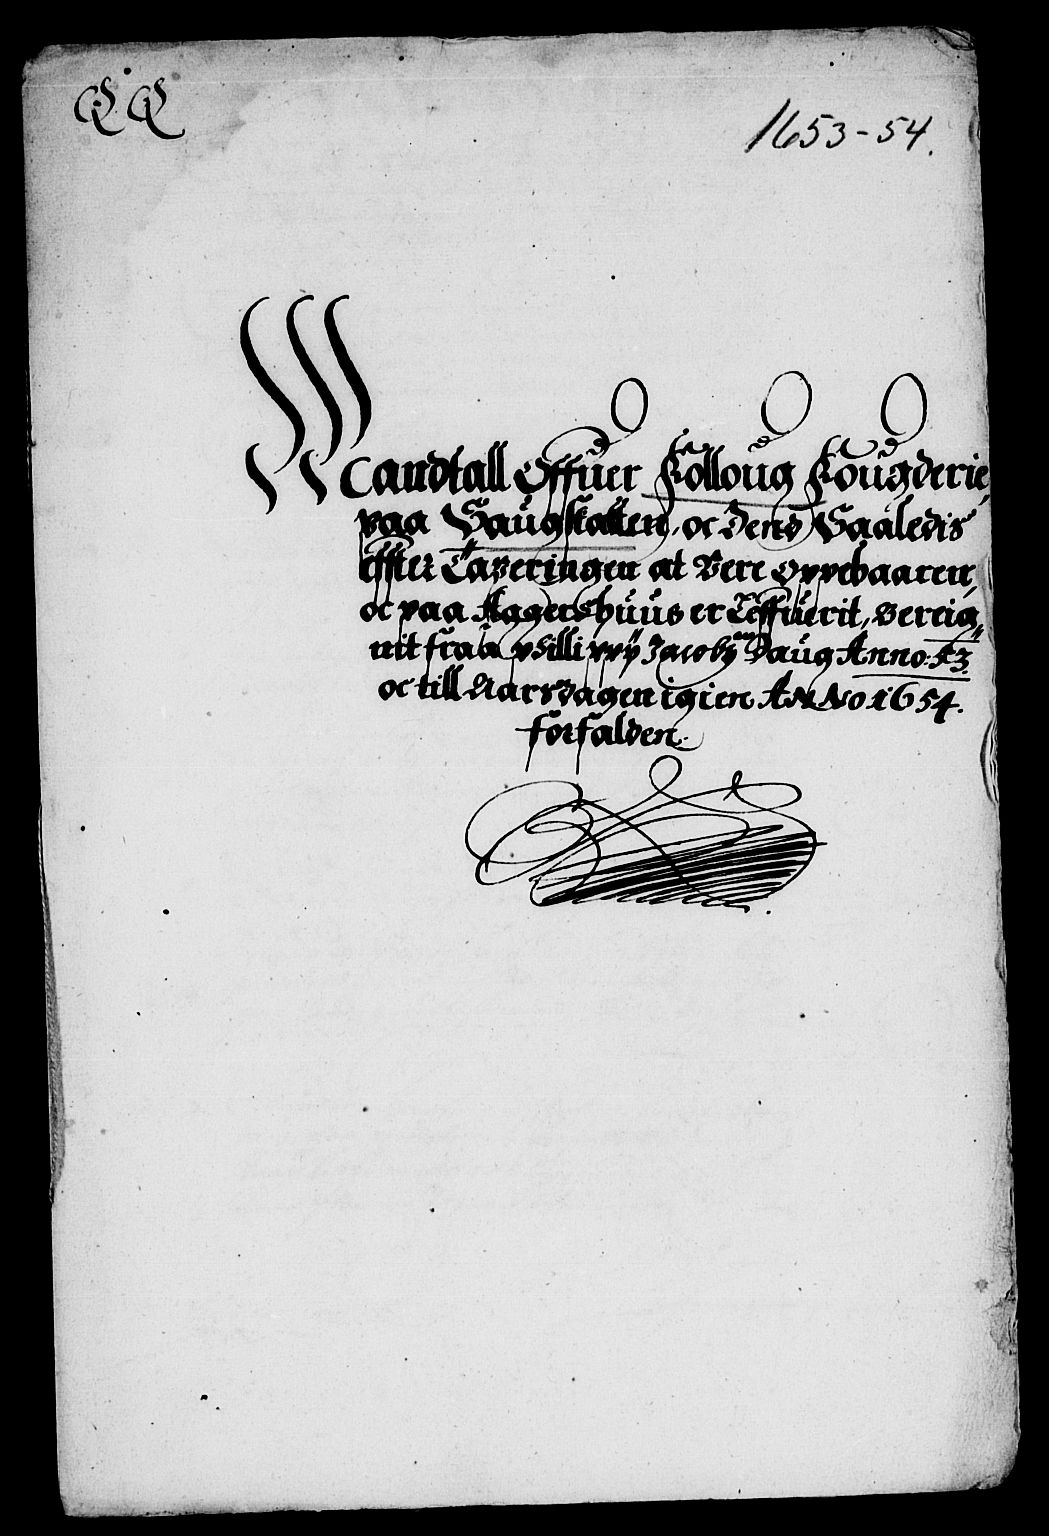 QQ
1653-54.
Mandtall Offuer Folloug Fougderie,
paa Saugskatten, oc dend Saaledis
effter Taxeringen at Vere Oppebaaren,
oc paa Aggershuus er Leffuerit, bereig„
nit fraa philippi Jacobj Daug Anno: 53.
oc till Aarsdagen igien ANNo 1654.
forfalden.